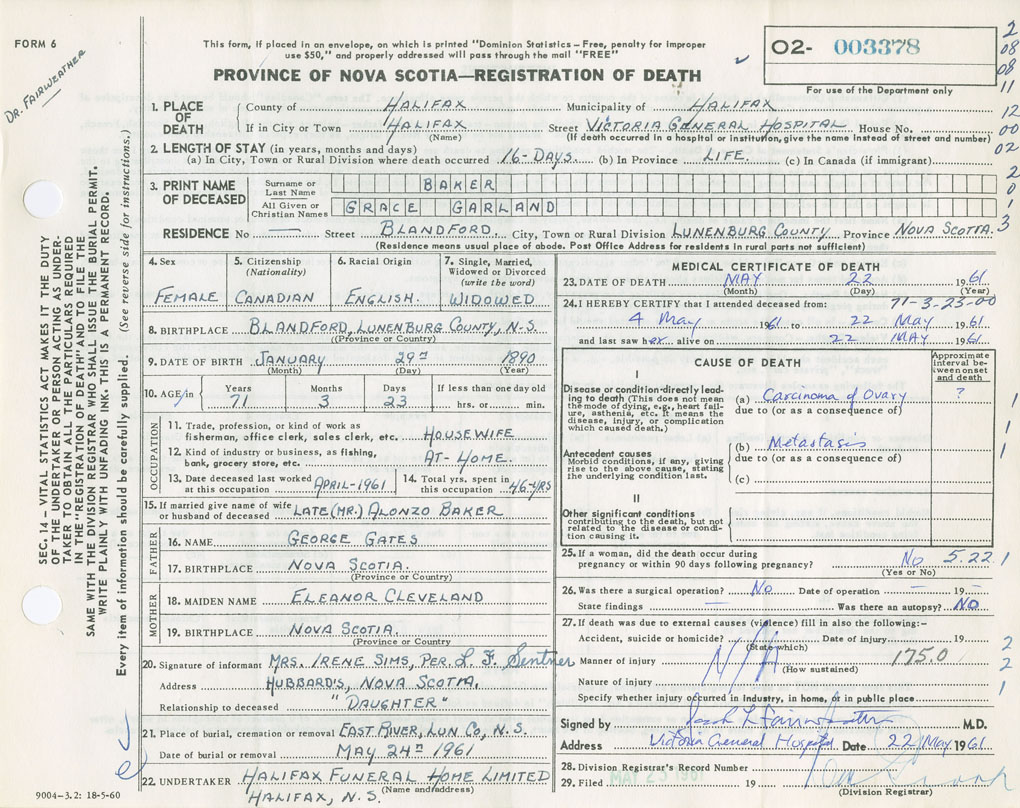 FORM 6
DR. FAIRWEATHER
This form, if placed in an envelope, on which is printed "Dominion Statistics – Free, penalty for improper
use $50," and properly addressed will pass through the mail "FREE"
PROVINCE OF NOVA SCOTIA—REGISTRATION OF DEATH
O2- 003378
For use of the Department only
2
08
08
11
12
00
02
2
0
1
3
1. PLACE OF DEATH County of HALIFAX Municipality of HALIFAX
If in City or Town HALIFAX Street VICTORIA GENERAL HOSPITAL House No.
(Name) (If death occurred in a hospital or institution, give the name instead of street and number)
2. LENGTH OF STAY (in years, months and days)
(a) In City, Town or Rural Division where death occurred 16-DAYS. (b) In Province LIFE. (c) In Canada (if immigrant)
3. PRINT NAME OF DECEASED Surname or Last Name BAKER
All Given or Christian Names GRACE GARLAND
RESIDENCE No — Street BLANDFORD. City, Town or Rural Division LUNENBURG COUNTY. Province NOVA SCOTIA.
(Residence means usual place of abode. Post Office Address for residents in rural parts not sufficient)
4. Sex FEMALE
5. Citizenship (Nationality) CANADIAN
6. Racial Origin ENGLISH.
7. Single, Married, Widowed or Divorced (write the word) WIDOWED
8. BIRTHPLACE BLANDFORD, LUNENBURG COUNTY, N.S.
(Province or Country)
9. DATE OF BIRTH JANUARY 29TH 1890
(Month) (Day) (Year)
10. AGE in Years 71 Months 3 Days 23 If less than one day old hrs. or min.
OCCUPATION
11. Trade, profession, or kind of work as
fisherman, office clerk, sales clerk, etc. HOUSEWIFE
12. Kind of industry or business, as fishing,
bank, grocery store, etc. AT-HOME.
13. Date deceased last worked at this occupation APRIL-1961
14. Total yrs. spent in this occupation 46-YRS
15. If married give name of wife
or husband of deceased LATE (MR.) ALONZO BAKER
FATHER
16. NAME GEORGE GATES
17. BIRTHPLACE NOVA SCOTIA.
(Province or Country)
MOTHER
18. MAIDEN NAME ELEANOR CLEVELAND
19. BIRTHPLACE NOVA SCOTIA.
(Province or Country
20. Signature of informant MRS. IRENE SIMS, PER. L. F. Sentner
Address HUBBARD'S, NOVA SCOTIA.
Relationship to deceased "DAUGHTER"
21. Place of burial, cremation or removal EAST RIVER, LUN. CO, N.S.
Date of burial or removal MAY 24TH 1961
22. UNDERTAKER HALIFAX FUNERAL HOME LIMITED
(Name and address)
HALIFAX, N.S.
9004-3.2: 18-5-60
MEDICAL CERTIFICATE OF DEATH
23. DATE OF DEATH MAY 22 1961
(Month) (Day) (Year)
24. I HEREBY CERTIFY that I attended deceased from: 71-3-23-00
4 May 1961 to 22 May 1961
and last saw her alive on 22 May 1961
CAUSE OF DEATH
Approximate interval between onset and death
I
Disease or condition directly leading to death (This does not mean the mode of dying, e.g., heart failure, asthenia, etc. It means the disease, injury, or complication which caused death.)
(a) Carcinoma of Ovary ?
due to (or as a consequence of)
Antecedent causes
Morbid conditions, if any, giving rise to the above cause, stating the underlying condition last.
(b) Metastasis
due to (or as a consequence of)
(c)
II
Other significant conditions
contributing to the death, but not related to the disease or condition causing it.
1
1
1
25. If a woman, did the death occur during
pregnancy or within 90 days following pregnancy? No 5.22 1
(Yes or No)
26. Was there a surgical operation? No Date of operation — 19 —
State findings — Was there an autopsy? No
27. If death was due to external causes (violence) fill in also the following:-
Accident, suicide or homicide? Date of injury 19
(State which)
Manner of injury N/A 175.0
(How sustained)
Nature of injury
Specify whether injury occurred in industry, in home, or in public place
2
2
1
Signed by M.D.
Address Victoria General Hospital Date 22 May 1961
28. Division Registrar's Record Number
29. Filed MAY 23 1961 19
(Division Registrar)
SEC. 14 – VITAL STATISTICS ACT MAKES IT THE DUTY
OF THE UNDERTAKER OR PERSON ACTING AS UNDER-
TAKER TO OBTAIN ALL THE PARTICULARS REQUIRED
IN THE "REGISTRATION OF DEATH" AND TO FILE THE
SAME WITH THE DIVISION REGISTRAR WHO SHALL ISSUE THE BURIAL PERMIT.
WRITE PLAINLY WITH UNFADING INK. THIS IS A PERMANENT RECORD.
Every item of information should be carefully supplied. (See reverse side for instructions.)